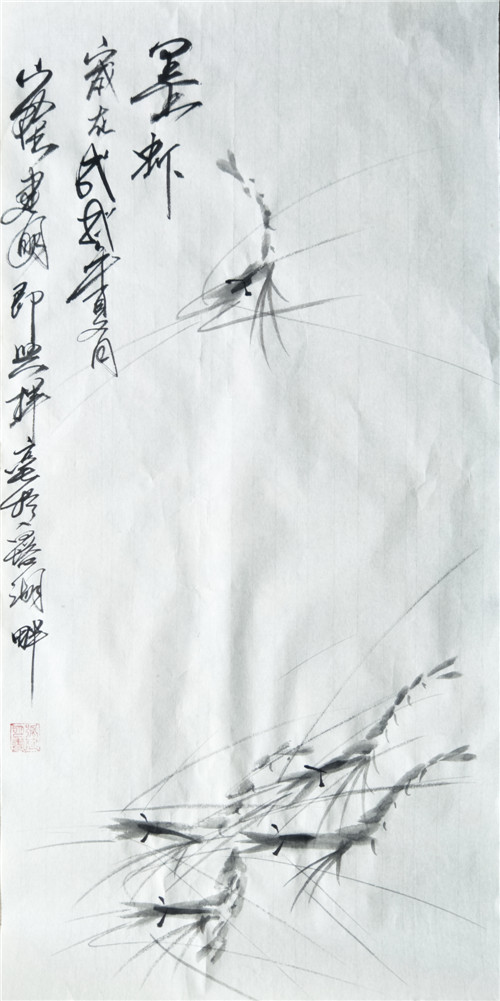 墨虾
岁在戊戌年夏月
山庄建明即兴挥毫于容湖畔